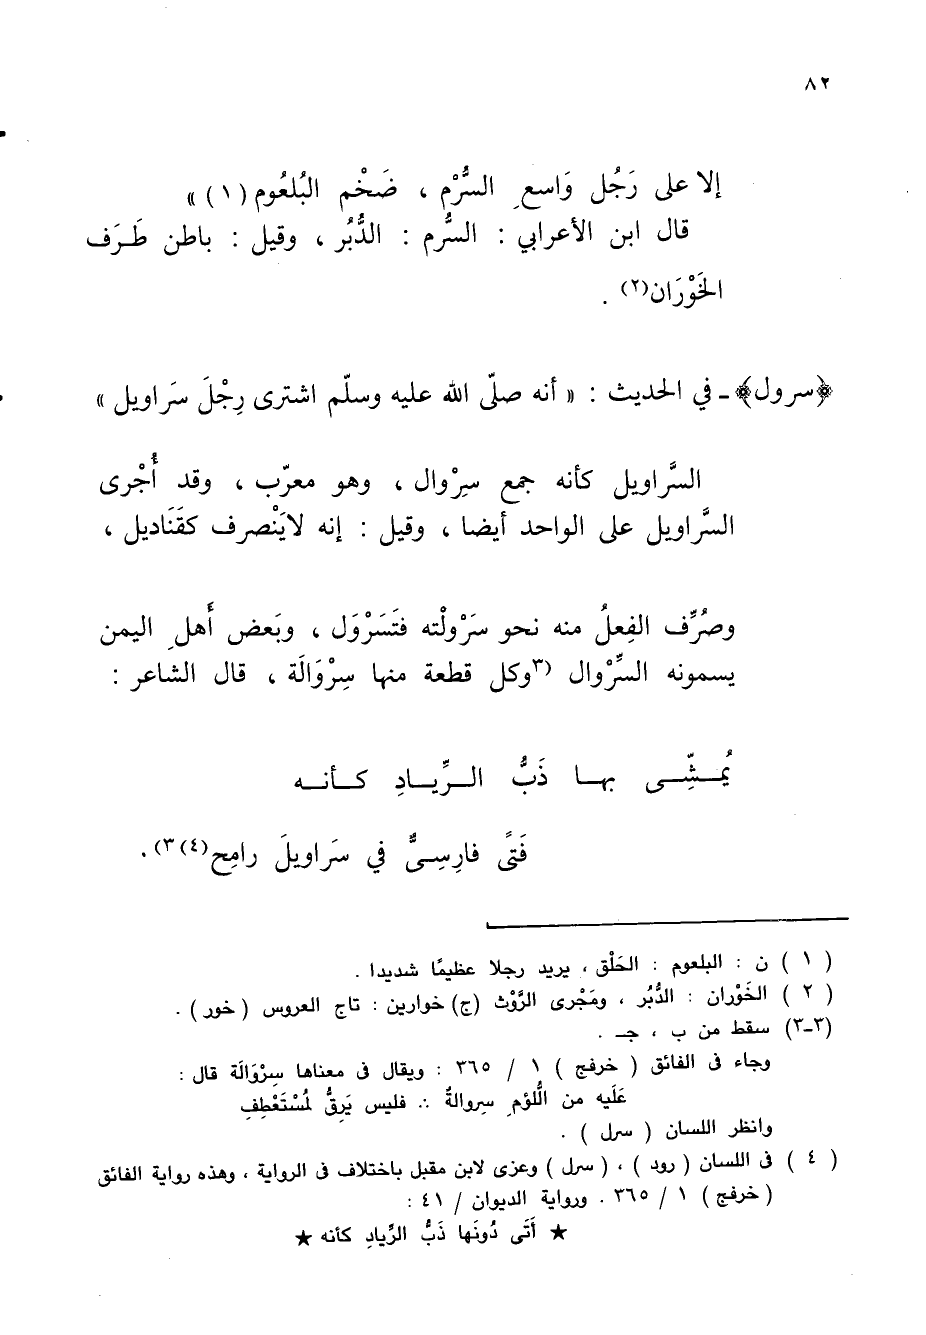 ٨٢
إلا على رَجُل وَاسعِ السُّرْم ، ضَخْم البُلعُوم (١) »
قال ابن الأعرابي : السُّرم : الدُّبُر ، وقيل : باطن طَرَف
الخَوْرَان(٢) .
﴿سرول﴾ ـ في الحديث : « أنه صلّى الله عليه وسلّم اشترى رِجْلَ سَراويل »
السَّراويل كأنه جمع سِرْوال ، وهو معرّب ، وقد أُجْرى
السَّراويل على الواحد أيضا ، وقيل : إنه لايَنْصرف كقَنَاديل ،
وصُرِّف الفِعلُ منه نحو سَرْولْته فتَسَرْوَل ، وبَعض أَهلِ اليمن
يسمونه السِّرْوال (٣وكل قطعة منها سِرْوَالَة ، قال الشاعر :
يُمــشِّــى بهـا ذَبُّ الــرِّيــادِ كــأنــه
فَتًى فارِسىٌّ في سَراويلَ رامِح(٤)٣) .
( ١ ) ن : البلعوم : الحَلْق ، يريد رجلا عظيمًا شديدا .
( ٢ ) الخَوْران : الدُّبُر ، ومَجْرى الرَّوْث (ج) خوارين : تاج العروس ( خور ) .
(٣-٣) سقط من ب ، جـ .
وجاء فى الفائق ( خرفج ) ١ / ٣٦٥ : ويقال فى معناها سِرْوَالَة قال :
عَلَيه من الُّلؤمِ سِروالةٌ ∴ فليس يَرِقُّ لمُسْتَعْطِفِ
وانظر اللسان ( سرل ) .
( ٤ ) فى اللسان ( رود ) ، ( سرل ) وعزى لابن مقبل باختلاف فى الرواية ، وهذه رواية الفائق
( خرفج ) ١ / ٣٦٥ . ورواية الديوان / ٤١ :
★ أَتَى دُونَها ذَبُّ الرِّيادِ كأنه ★